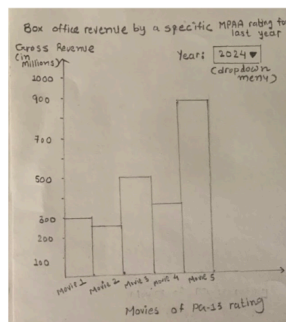 Box office revenue by a specific MPAA rating for
last year
Gross Revenue
(in
Millions)
Year: 2024 ▼
(dropdown
menu)
1000
900
700
500
300
200
100
Movie 1 Movie 2 Movie 3 Movie 4 Movie 5
Movies of PG-13 rating